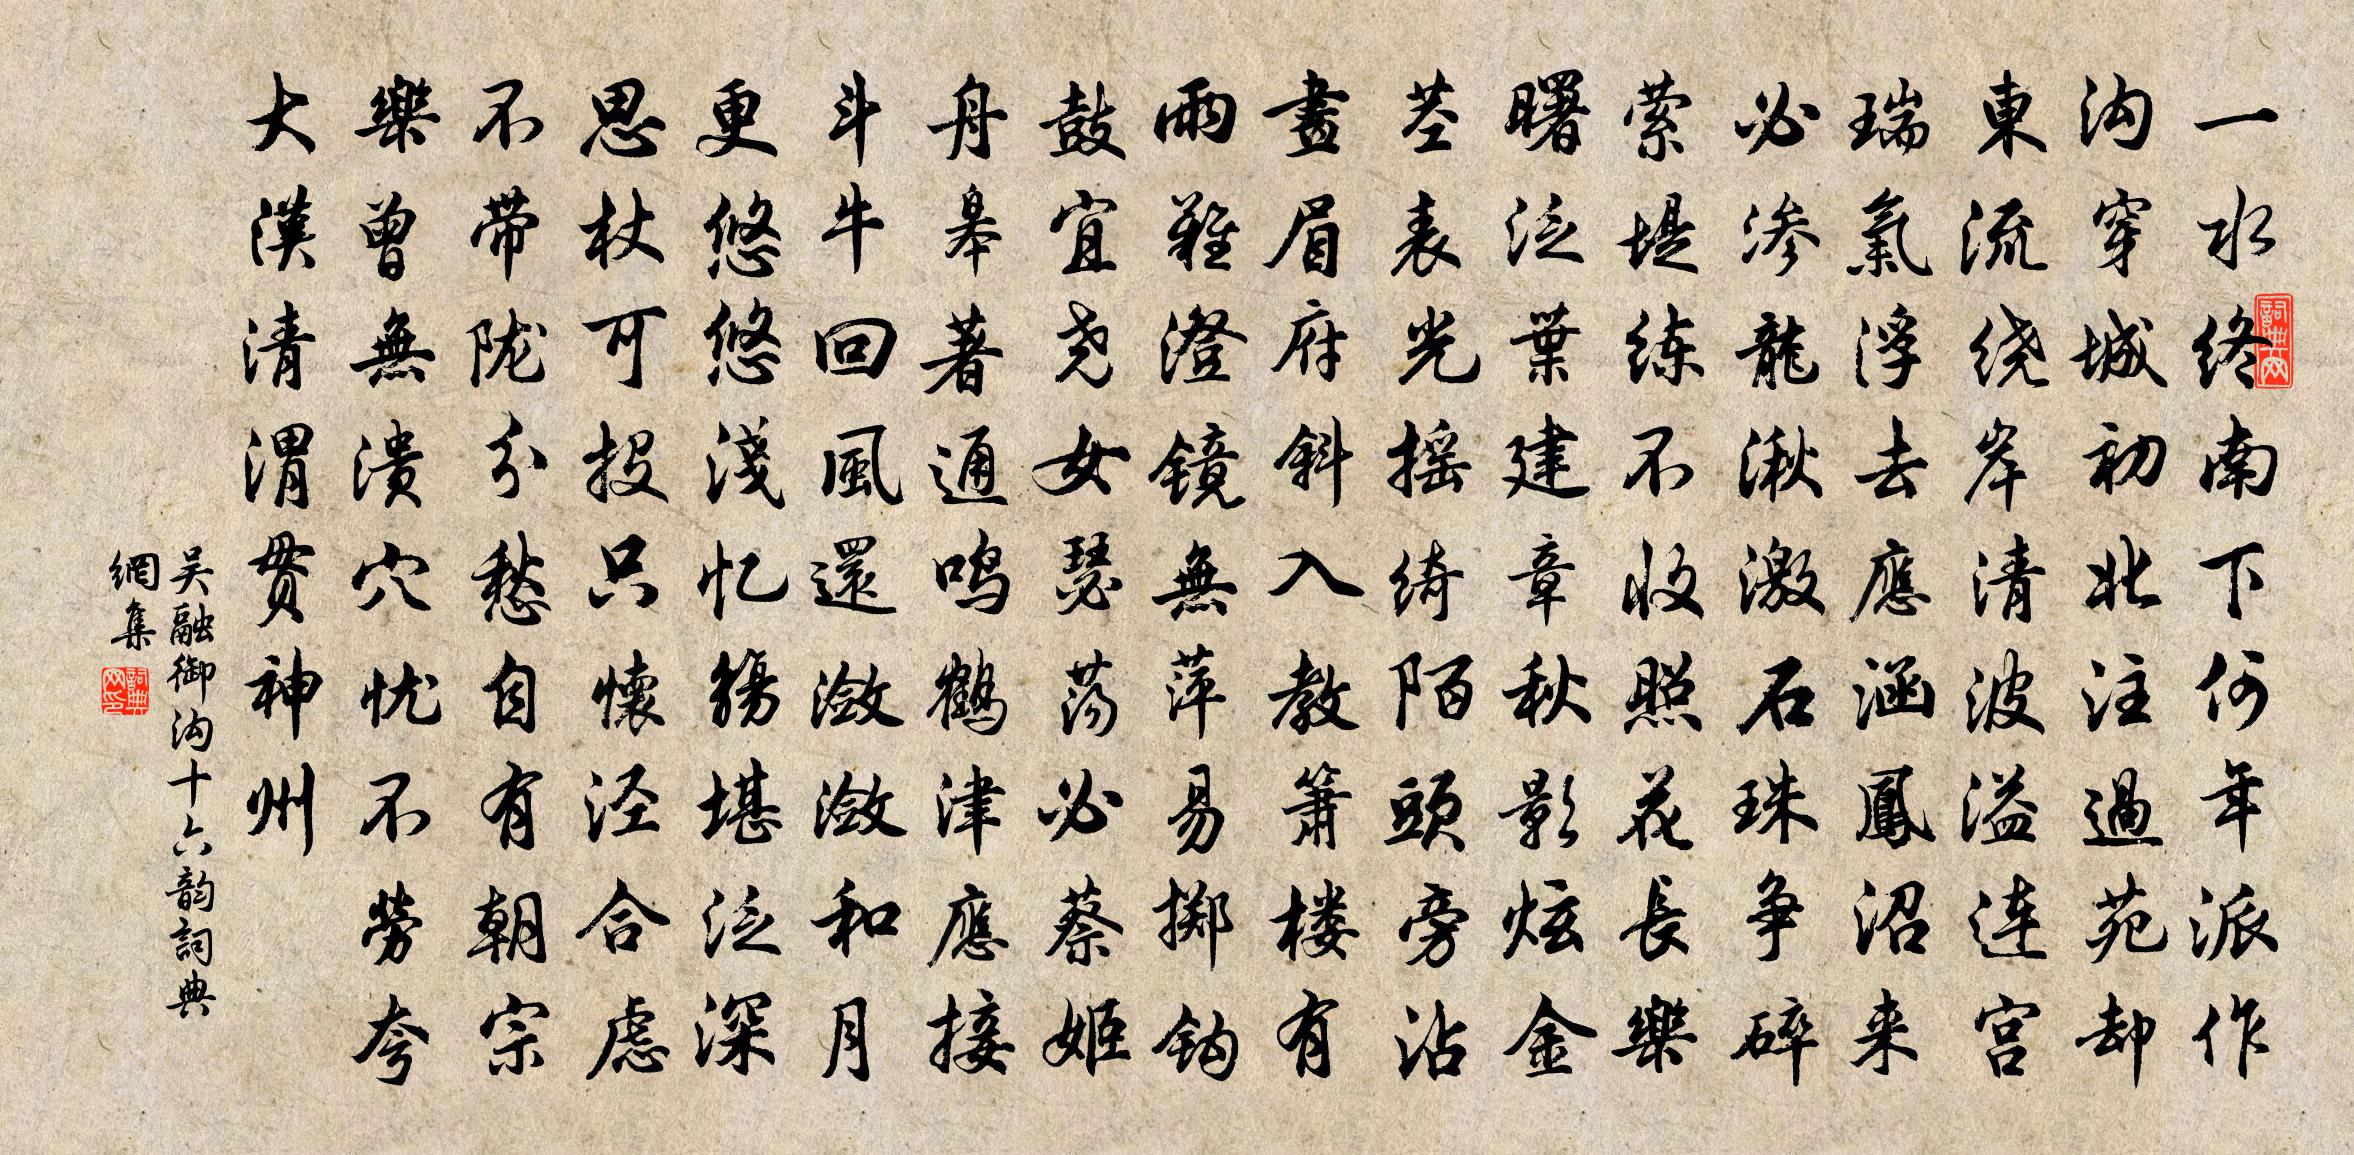 一水终南下何年派作
沟穿城初北注過苑却
東流绕岸清波溢连宫
瑞氣浮去應涵鳳沼来
必渗龍湫激石珠争碎
萦堤练不收照花長樂
曙泛葉建章秋影炫金
茎表光摇绮陌頭旁沾
畫眉府斜入教箫楼有
雨難澄镜無萍易掷钩
鼓宜尧女瑟荡必蔡姬
舟皋著通鸣鹤津應接
斗牛回風還潋潋和月
更悠悠淺忆觞堪泛深
思杖可投只懷泾合虑
不带陇分愁自有朝宗
樂曾無溃穴忧不劳夸
大漢清渭贯神州
吴融御沟十六韵詞典
網集
詞典网
詞典网印